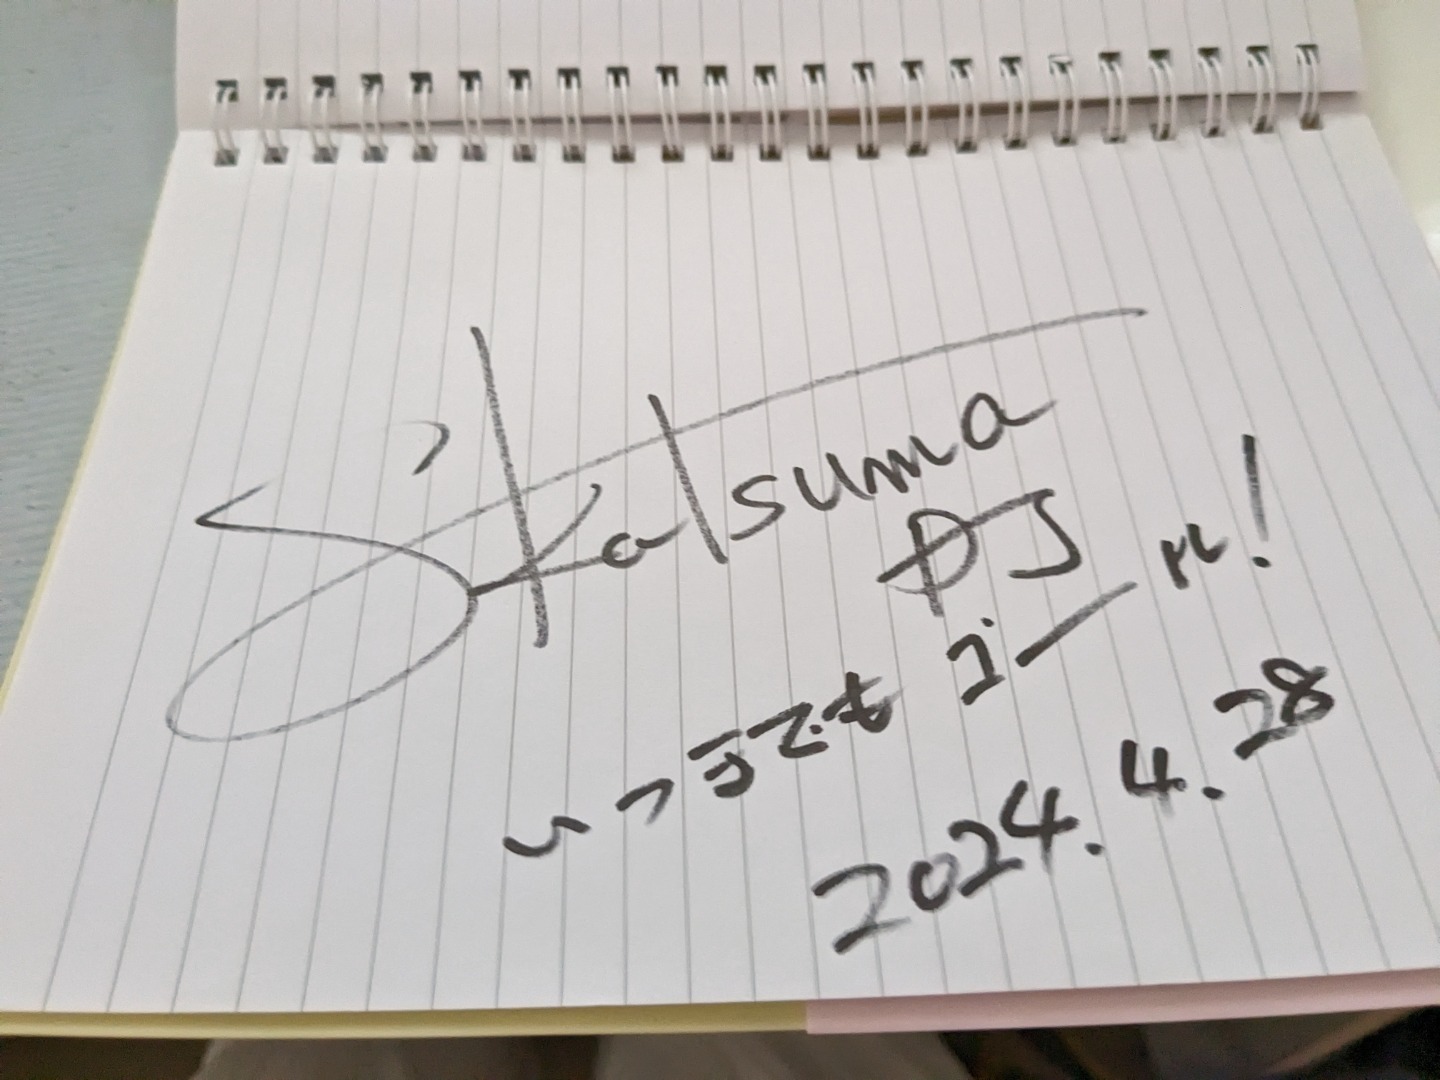 S'Katsuma
DJ
いつまでもエール!
2024.4.28